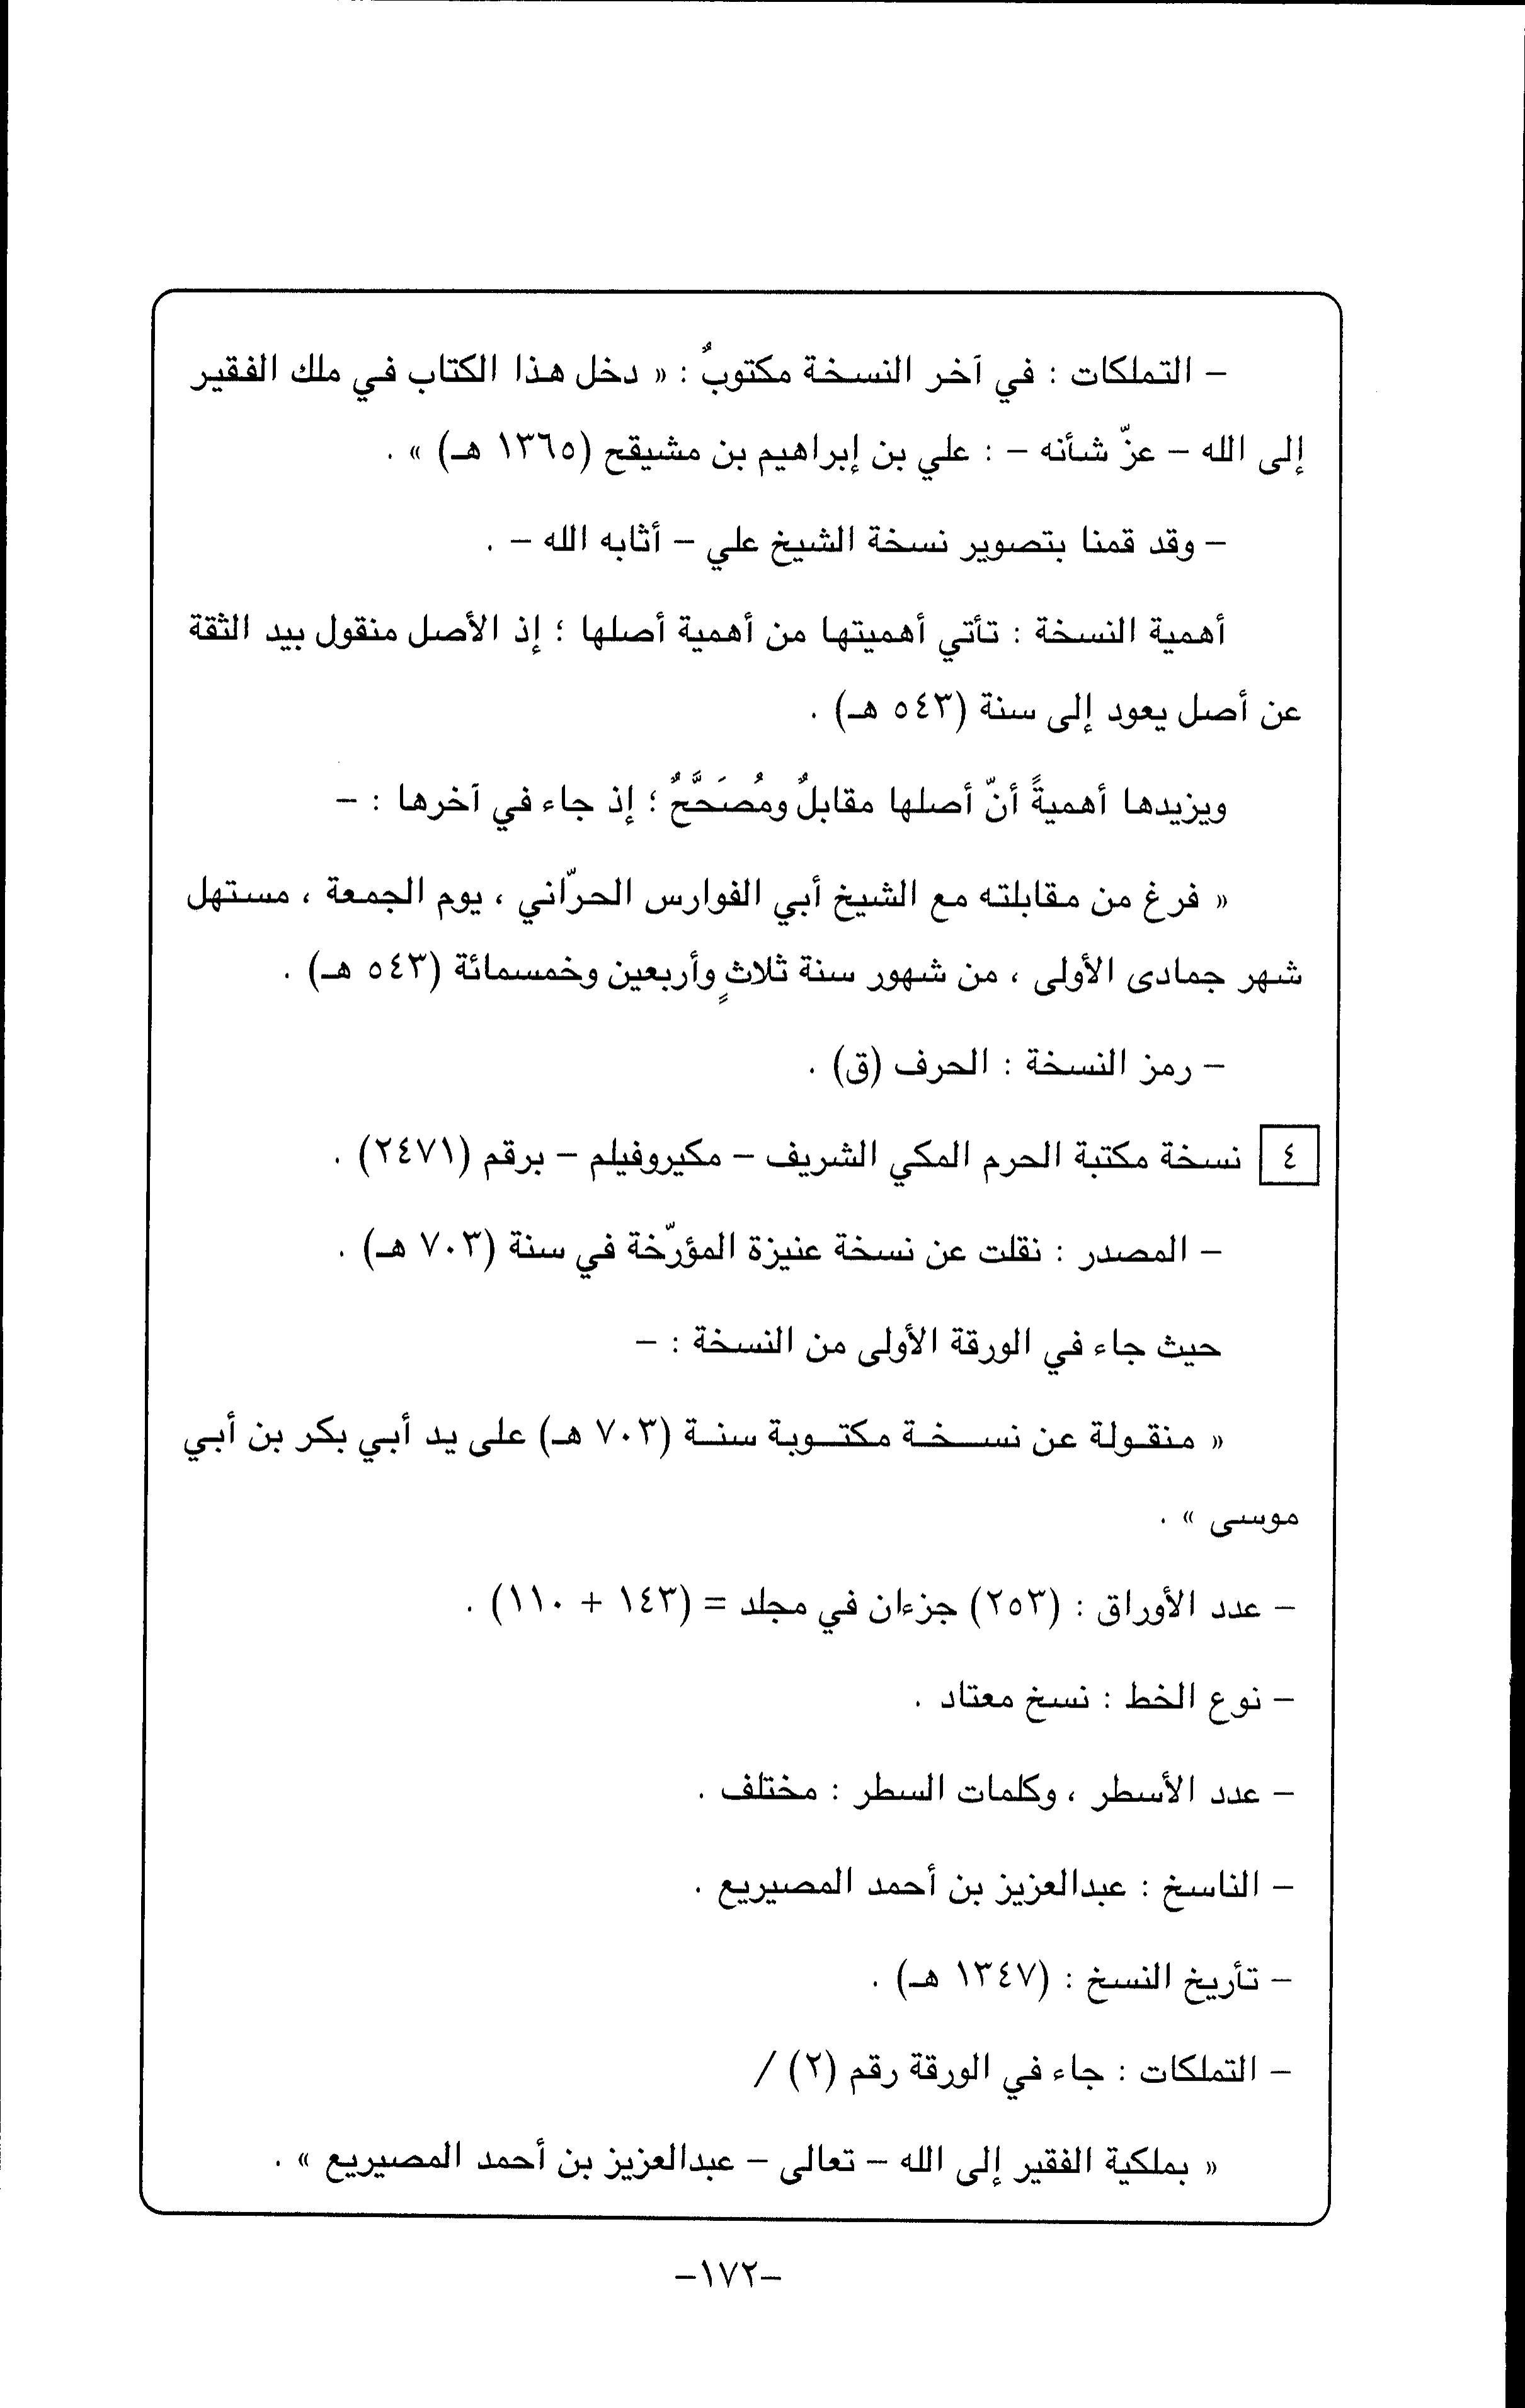 – التملكات : في آخر النسخة مكتوبٌ : « دخل هذا الكتاب في ملك الفقير
إلى الله – عزّ شأنه – : علي بن إبراهيم بن مشيقح (١٣٦٥ هـ) » .
– وقد قمنا بتصوير نسخة الشيخ علي – أثابه الله – .
أهمية النسخة : تأتي أهميتها من أهمية أصلها ؛ إذ الأصل منقول بيد الثقة
عن أصل يعود إلى سنة (٥٤٣ هـ) .
ويزيدها أهميةً أنّ أصلها مقابلٌ ومُصَحَّحٌ ؛ إذ جاء في آخرها : –
« فرغ من مقابلته مع الشيخ أبي الفوارس الحرّاني ، يوم الجمعة ، مستهل
شهر جمادى الأولى ، من شهور سنة ثلاثٍ وأربعين وخمسمائة (٥٤٣ هـ) .
– رمز النسخة : الحرف (ق) .
٤ نسخة مكتبة الحرم المكي الشريف – مكيروفيلم – برقم (٢٤٧١) .
– المصدر : نقلت عن نسخة عنيزة المؤرّخة في سنة (٧٠٣ هـ) .
حيث جاء في الورقة الأولى من النسخة : –
« منقولة عن نسخة مكتوبة سنة (٧٠٣ هـ) على يد أبي بكر بن أبي
موسى » .
– عدد الأوراق : (٢٥٣) جزءان في مجلد = (١٤٣ + ١١٠) .
– نوع الخط : نسخ معتاد .
– عدد الأسطر ، وكلمات السطر : مختلف .
– الناسخ : عبدالعزيز بن أحمد المصيريع .
– تأريخ النسخ : (١٣٤٧ هـ) .
– التملكات : جاء في الورقة رقم (٢) /
« بملكية الفقير إلى الله – تعالى – عبدالعزيز بن أحمد المصيريع » .
–١٧٢–